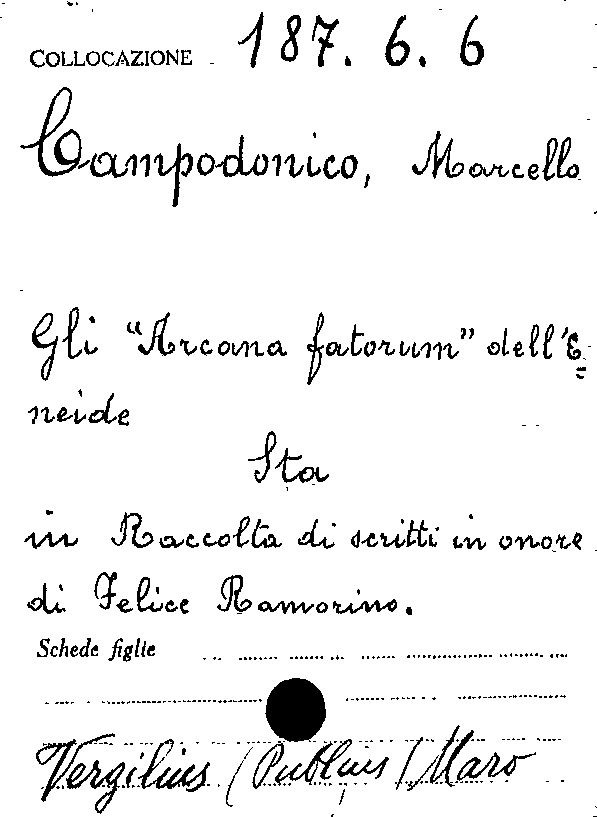 COLLOCAZIONE 187. 6. 6
Campodonico, Marcello
Gli "Arcana fatorum" dell'E
neide
Sta
in Raccolta di scritti in onore
di Felice Ramorino.
Schede figlie
Vergilius (Publius) Maro